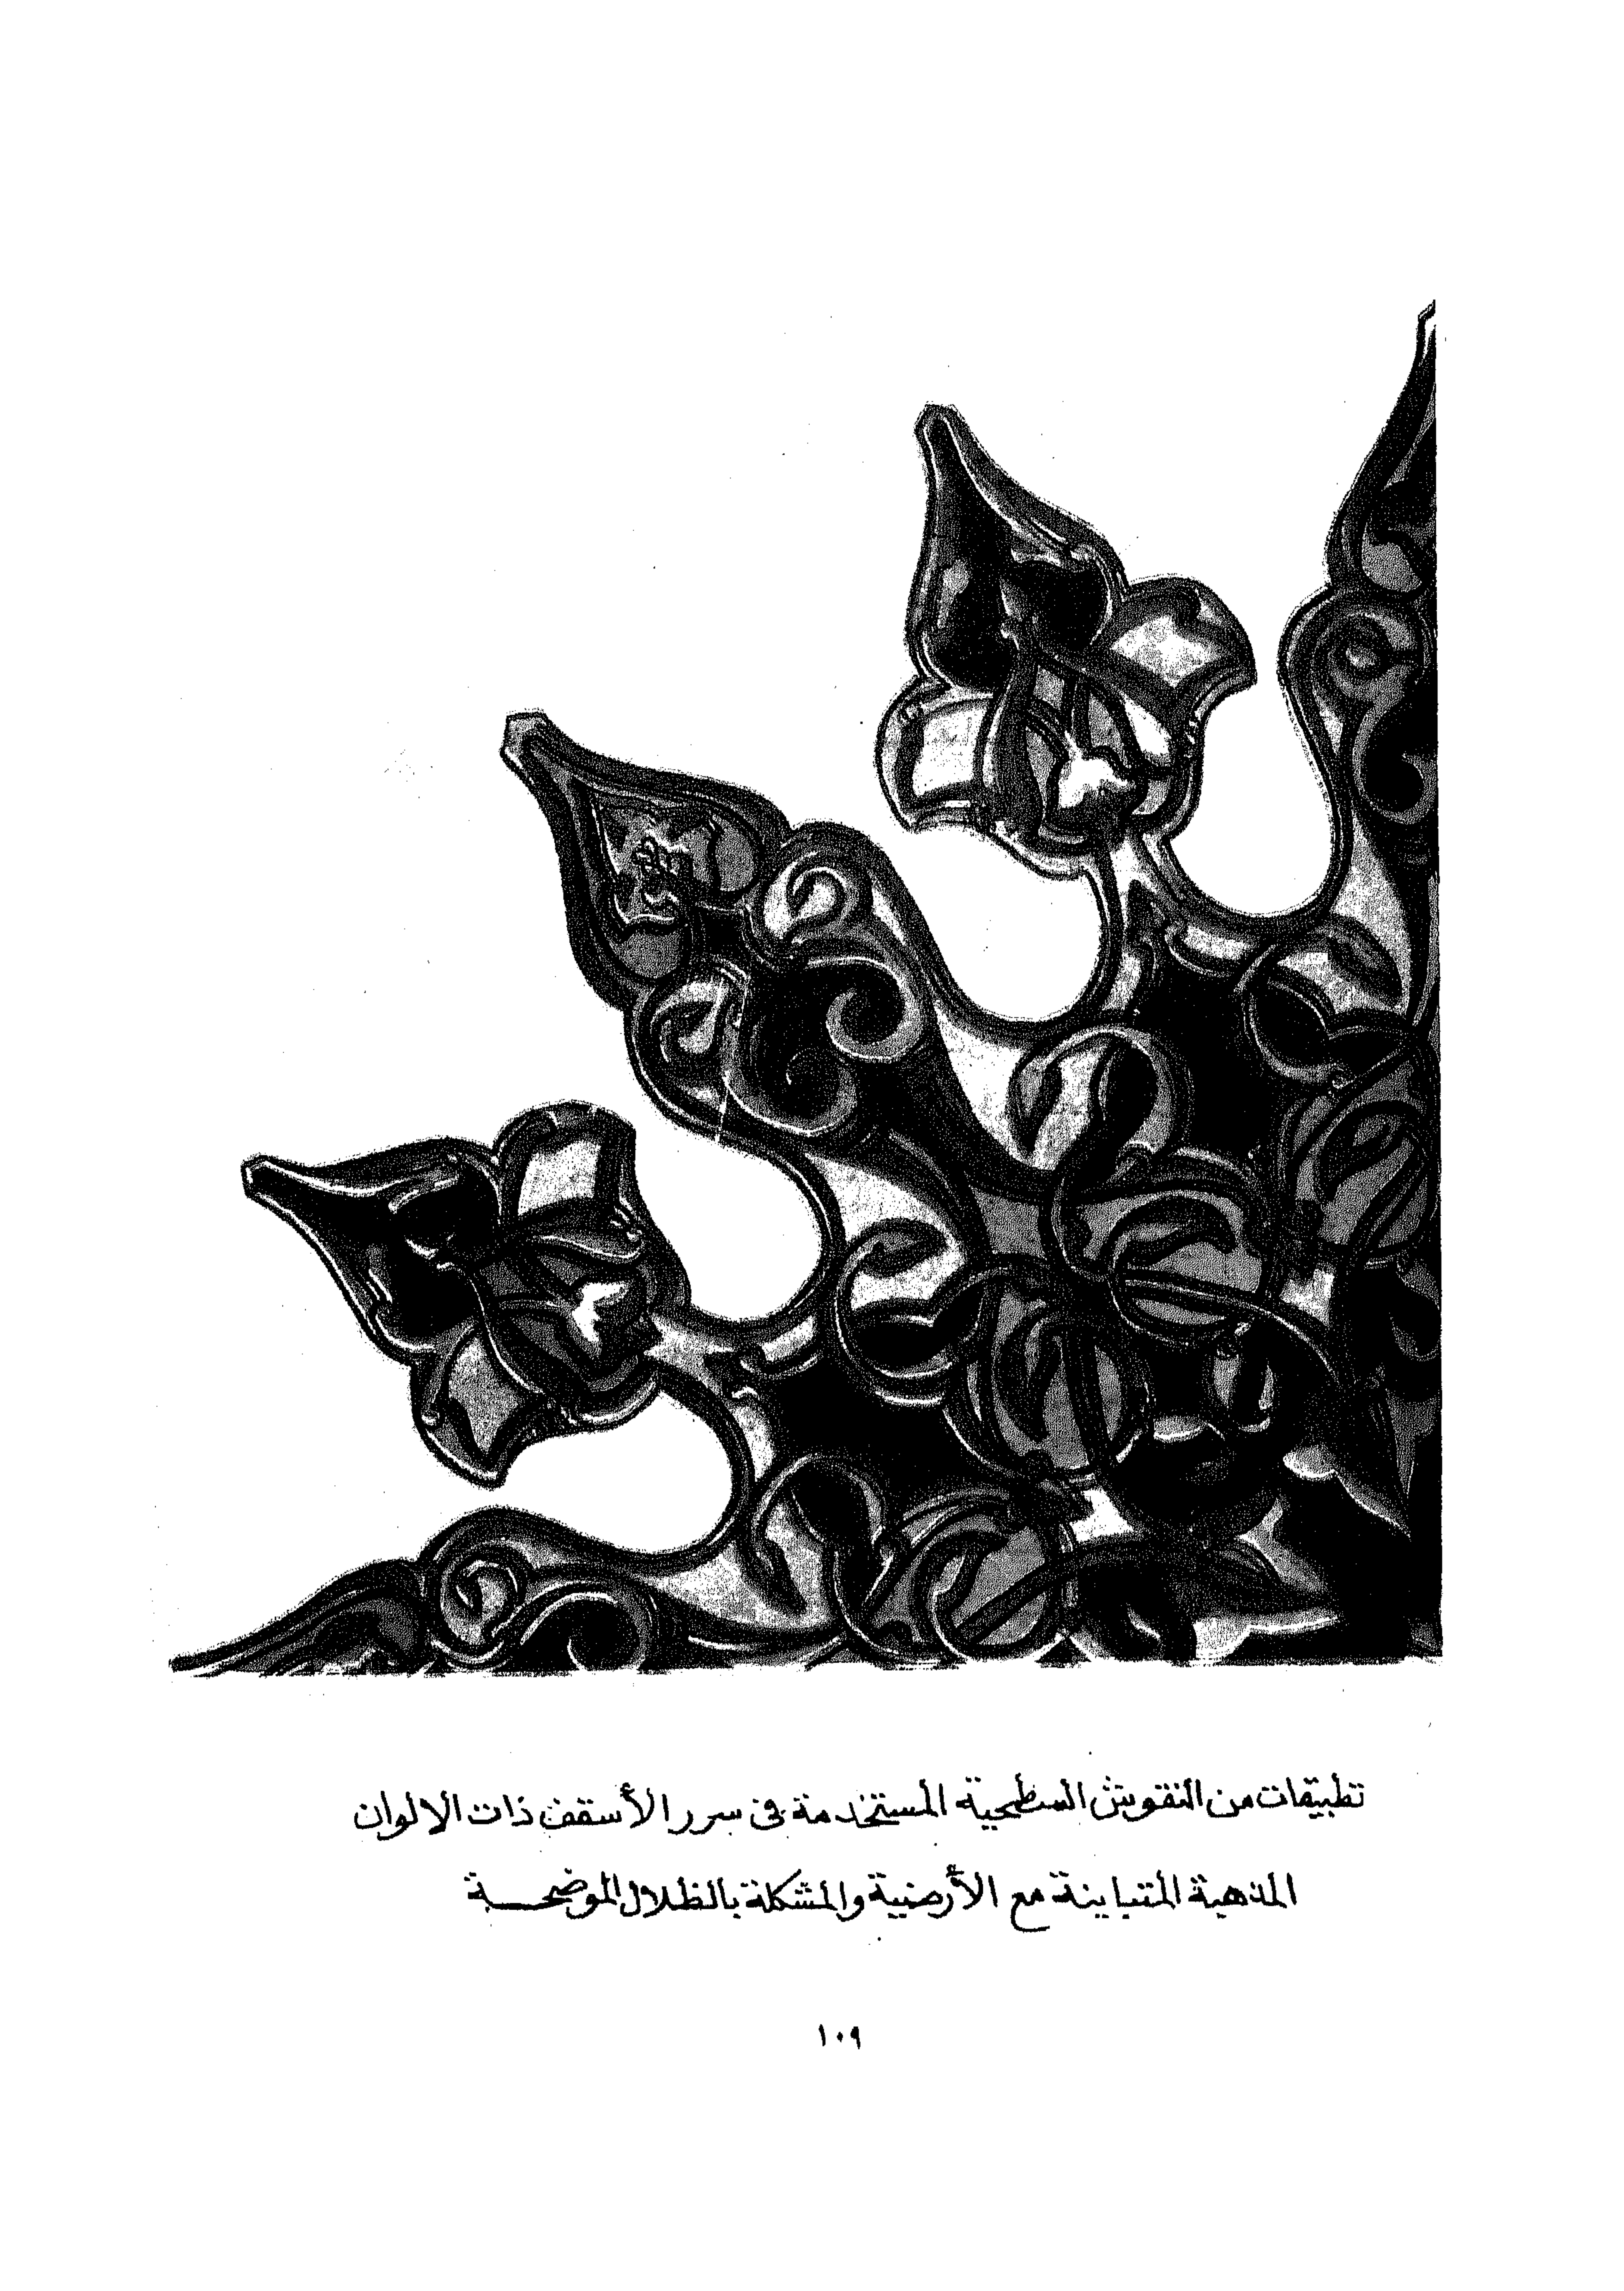 تطبيقات من النقوش السطحية المستخدمة فى سرر الأسقف ذات الالوان
المذهبة المتباينة مع الأرضية والمشكلة بالظلال الموضحـــة
١٠٩